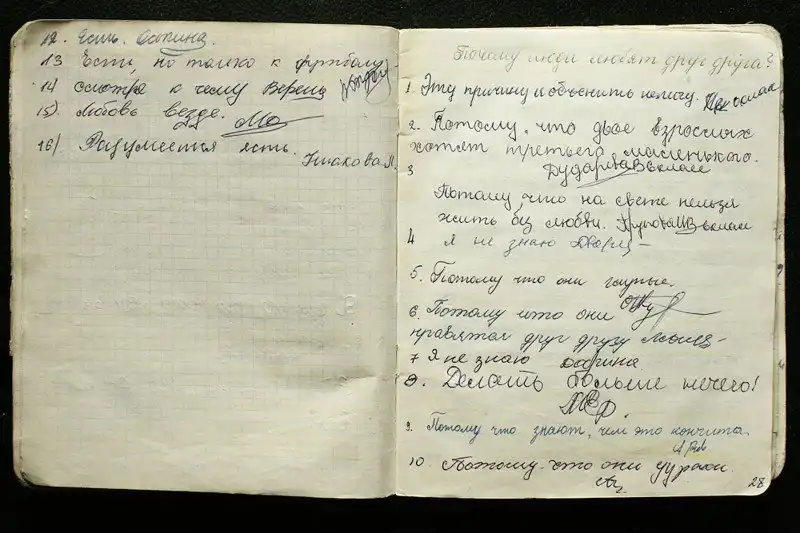 12. Есть. Осипина.
13 Есть, но только к футболу
14 смотря к чему Верещ
15) Любовь везде.
16) Разумеется есть.
Ушакова Л.
Почему люди любят друг друга?
1. Эту причину и объеснить немогу.
2. Потому, что двое взрослых
хотят третьего масинького.
Дударева В классе
3
Потому, что на свете нельзя
жить без любви.
4 я не знаю Дворец
5. Потому что они глупые.
6. Потому што они
нравяться друг другу
7 Я не знаю осипина
8. Делать больше нечего!
9. Потому что знают, чем это кончится
10. Потому что они дураки.
28